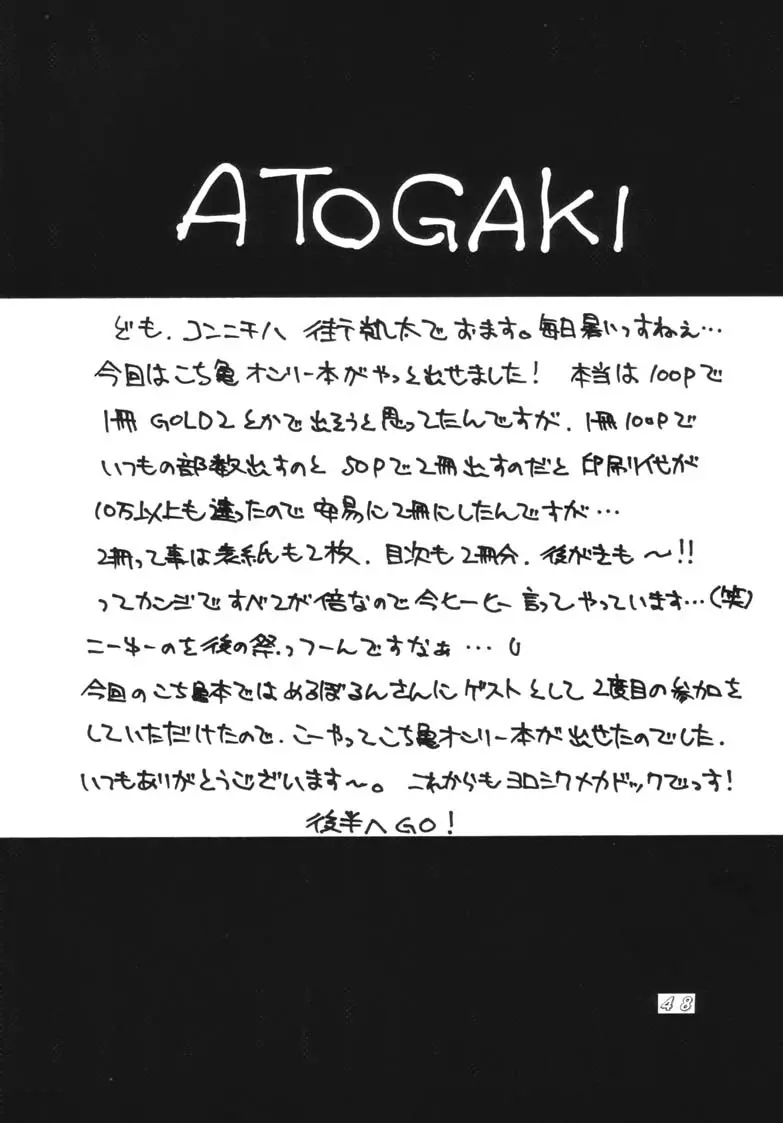 ATOGAKI
ども、コンニチハ 街で でおます。毎日暑いっすねぇ…
今回はこち亀オンリー本がやっと出せました! 本当は100Pで
1冊 GOLD2とかで出そうと思ってたんですが、1冊100Pで
いつもの部数出すのと 50Pで2冊出すのだと 印刷代が
10万以上も違ったので 安易に2冊にしたんですが…
2冊って事は表紙も2枚、目次も2冊分、後がきも〜!!
ってカンジですべてが倍なので今ヒーヒー言ってやっています…(笑)
こーゆーのを後の祭っつーんですなぁ…
今回のこち亀本ではめるぼるんさんにゲストとして2度目の参加を
していただけたので、こーやってこち亀オンリー本が出せたのでした。
いつもありがとうございます〜。 これからもヨロシクメカドックでっす!
後半へGO!
48